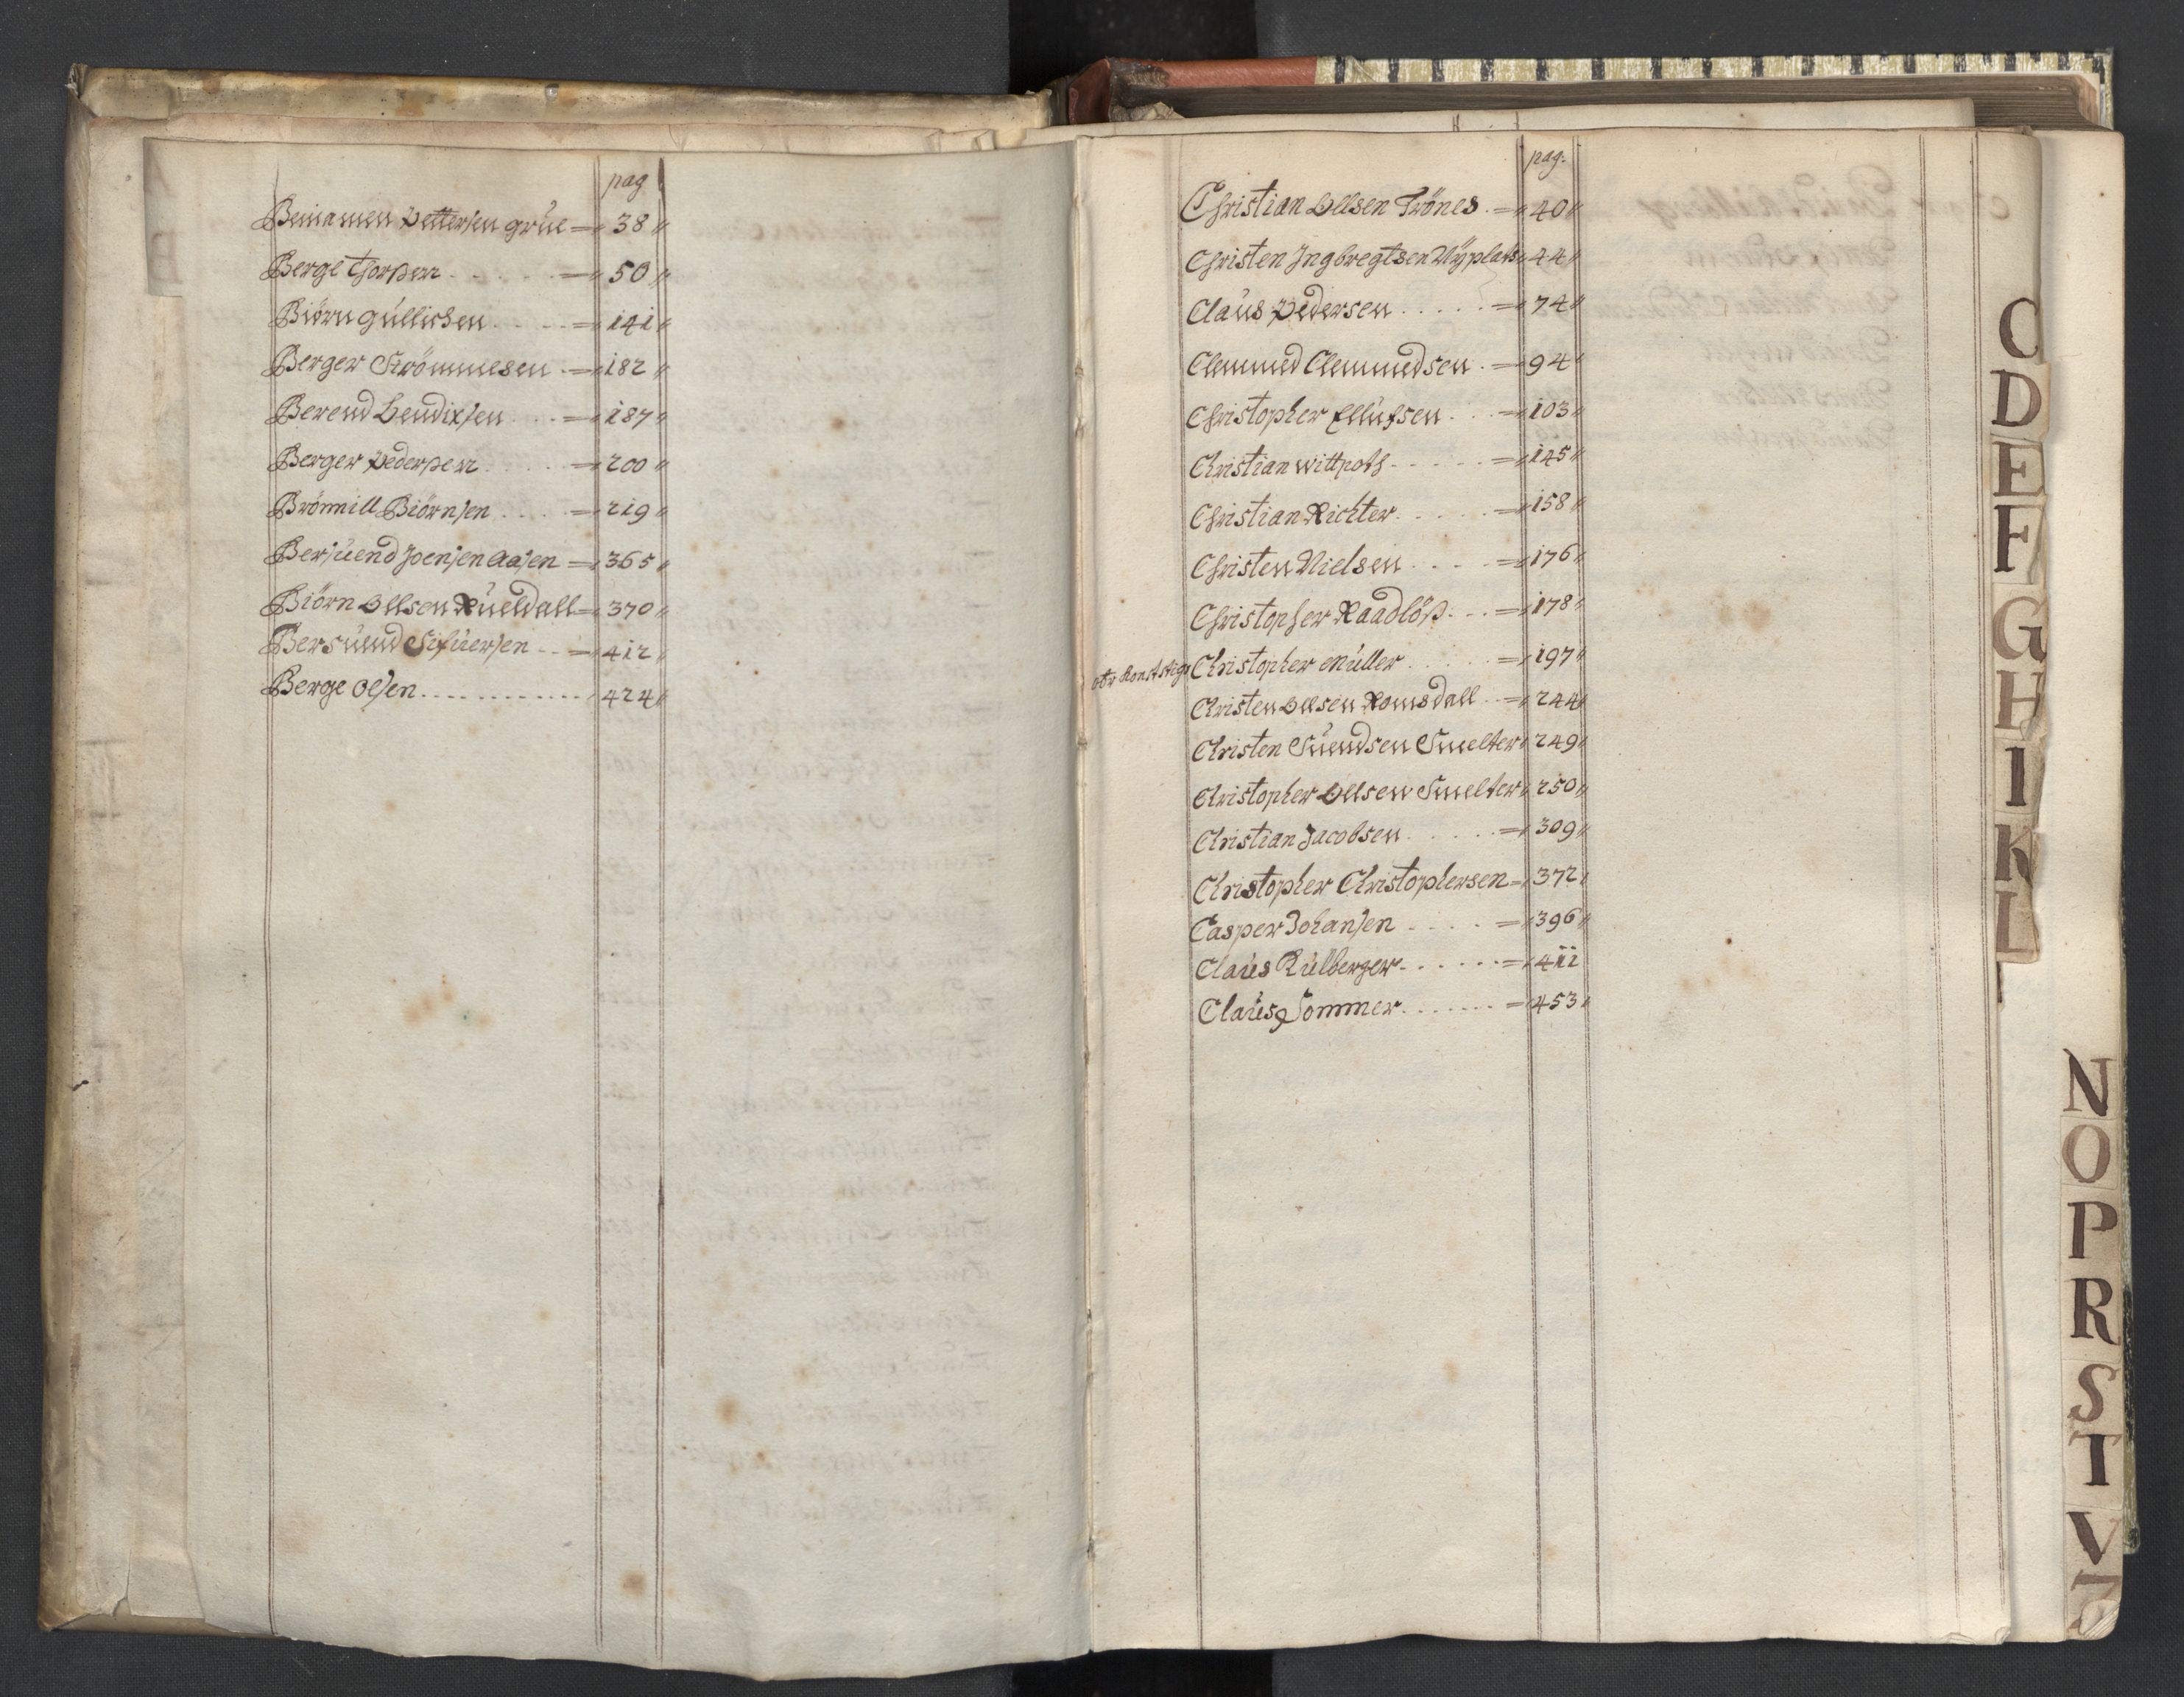 pag
Beniamen Pettersen grüe = 38 "
Berge Thorßen . . . . . = 50 "
Biörn güllichsen . . . . = 141 "
Berger Strömmesen . = 182 "
Berend Bendixsen . . . = 187 "
Berger Pederßen . . . . = 200 "
Brönnill Biörnsen . . . . = 219 "
Bersüend Joensen Aasen = 365 "
Biörn Ollsen Rüeldall = 370 "
Bersüend Sifüersen . . = 412 "
Berge Olsen . . . . . . . . . . . . 424 "
pag.
Christian Ollsen Trönes . = 40 "
Christen Ingbregtsen Nÿplats " 44 "
Claüs Pedersen . . . . . = 74 "
Clemmed Clemmedsen . = 94 "
Christopher Ellüfsen . . . = 103 "
Christian Wittpoth . . . . . = 145 "
Christian Richter . . . . . = 158 "
Christen Nielsen . . . . = 176 "
Christopher Raadlöß . . . = 178 "
Christopher Müller . . . . . = 197 "
Christen Ollsen Romsdall . . = 244 "
Christen Süendsen Smelter " 249 "
Christopher Ollsen Smelter " 250 "
Christian Jacobsen . . . . . = 309 "
Christopher Christophersen = 372 "
Casper Johansen . . . . = 396 "
Claüs Külberger . . . . . . = 411
Claüs Sommer . . . . . . . = 453 "
C
D
E
F
G
H
I
K
L
N
O
P
R
S
T
V